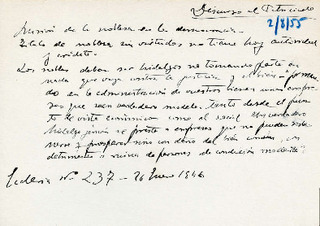 Discurso al Patriciado
2/8/55
Misión de la nobleza en la democracia.
Título de nobleza sin méritos no tiene hoy autoridad
y crédito.
Los nobles deben ser hidalgos no tomando parte en
nada que vaya contra la justicia y
en la administración de vuestros bienes
que sean verdaderos modelos. Tanto desde el pun-
to de vista económico como al social. Un verdadero
hidalgo jamás se presta a empresas que no pueden soste-
nerse y prosperar sino con daño del bien común, con
detrimento o ruina de personas de condición modesta".
Ecclesia Nº 237 - 26 Enero 1946